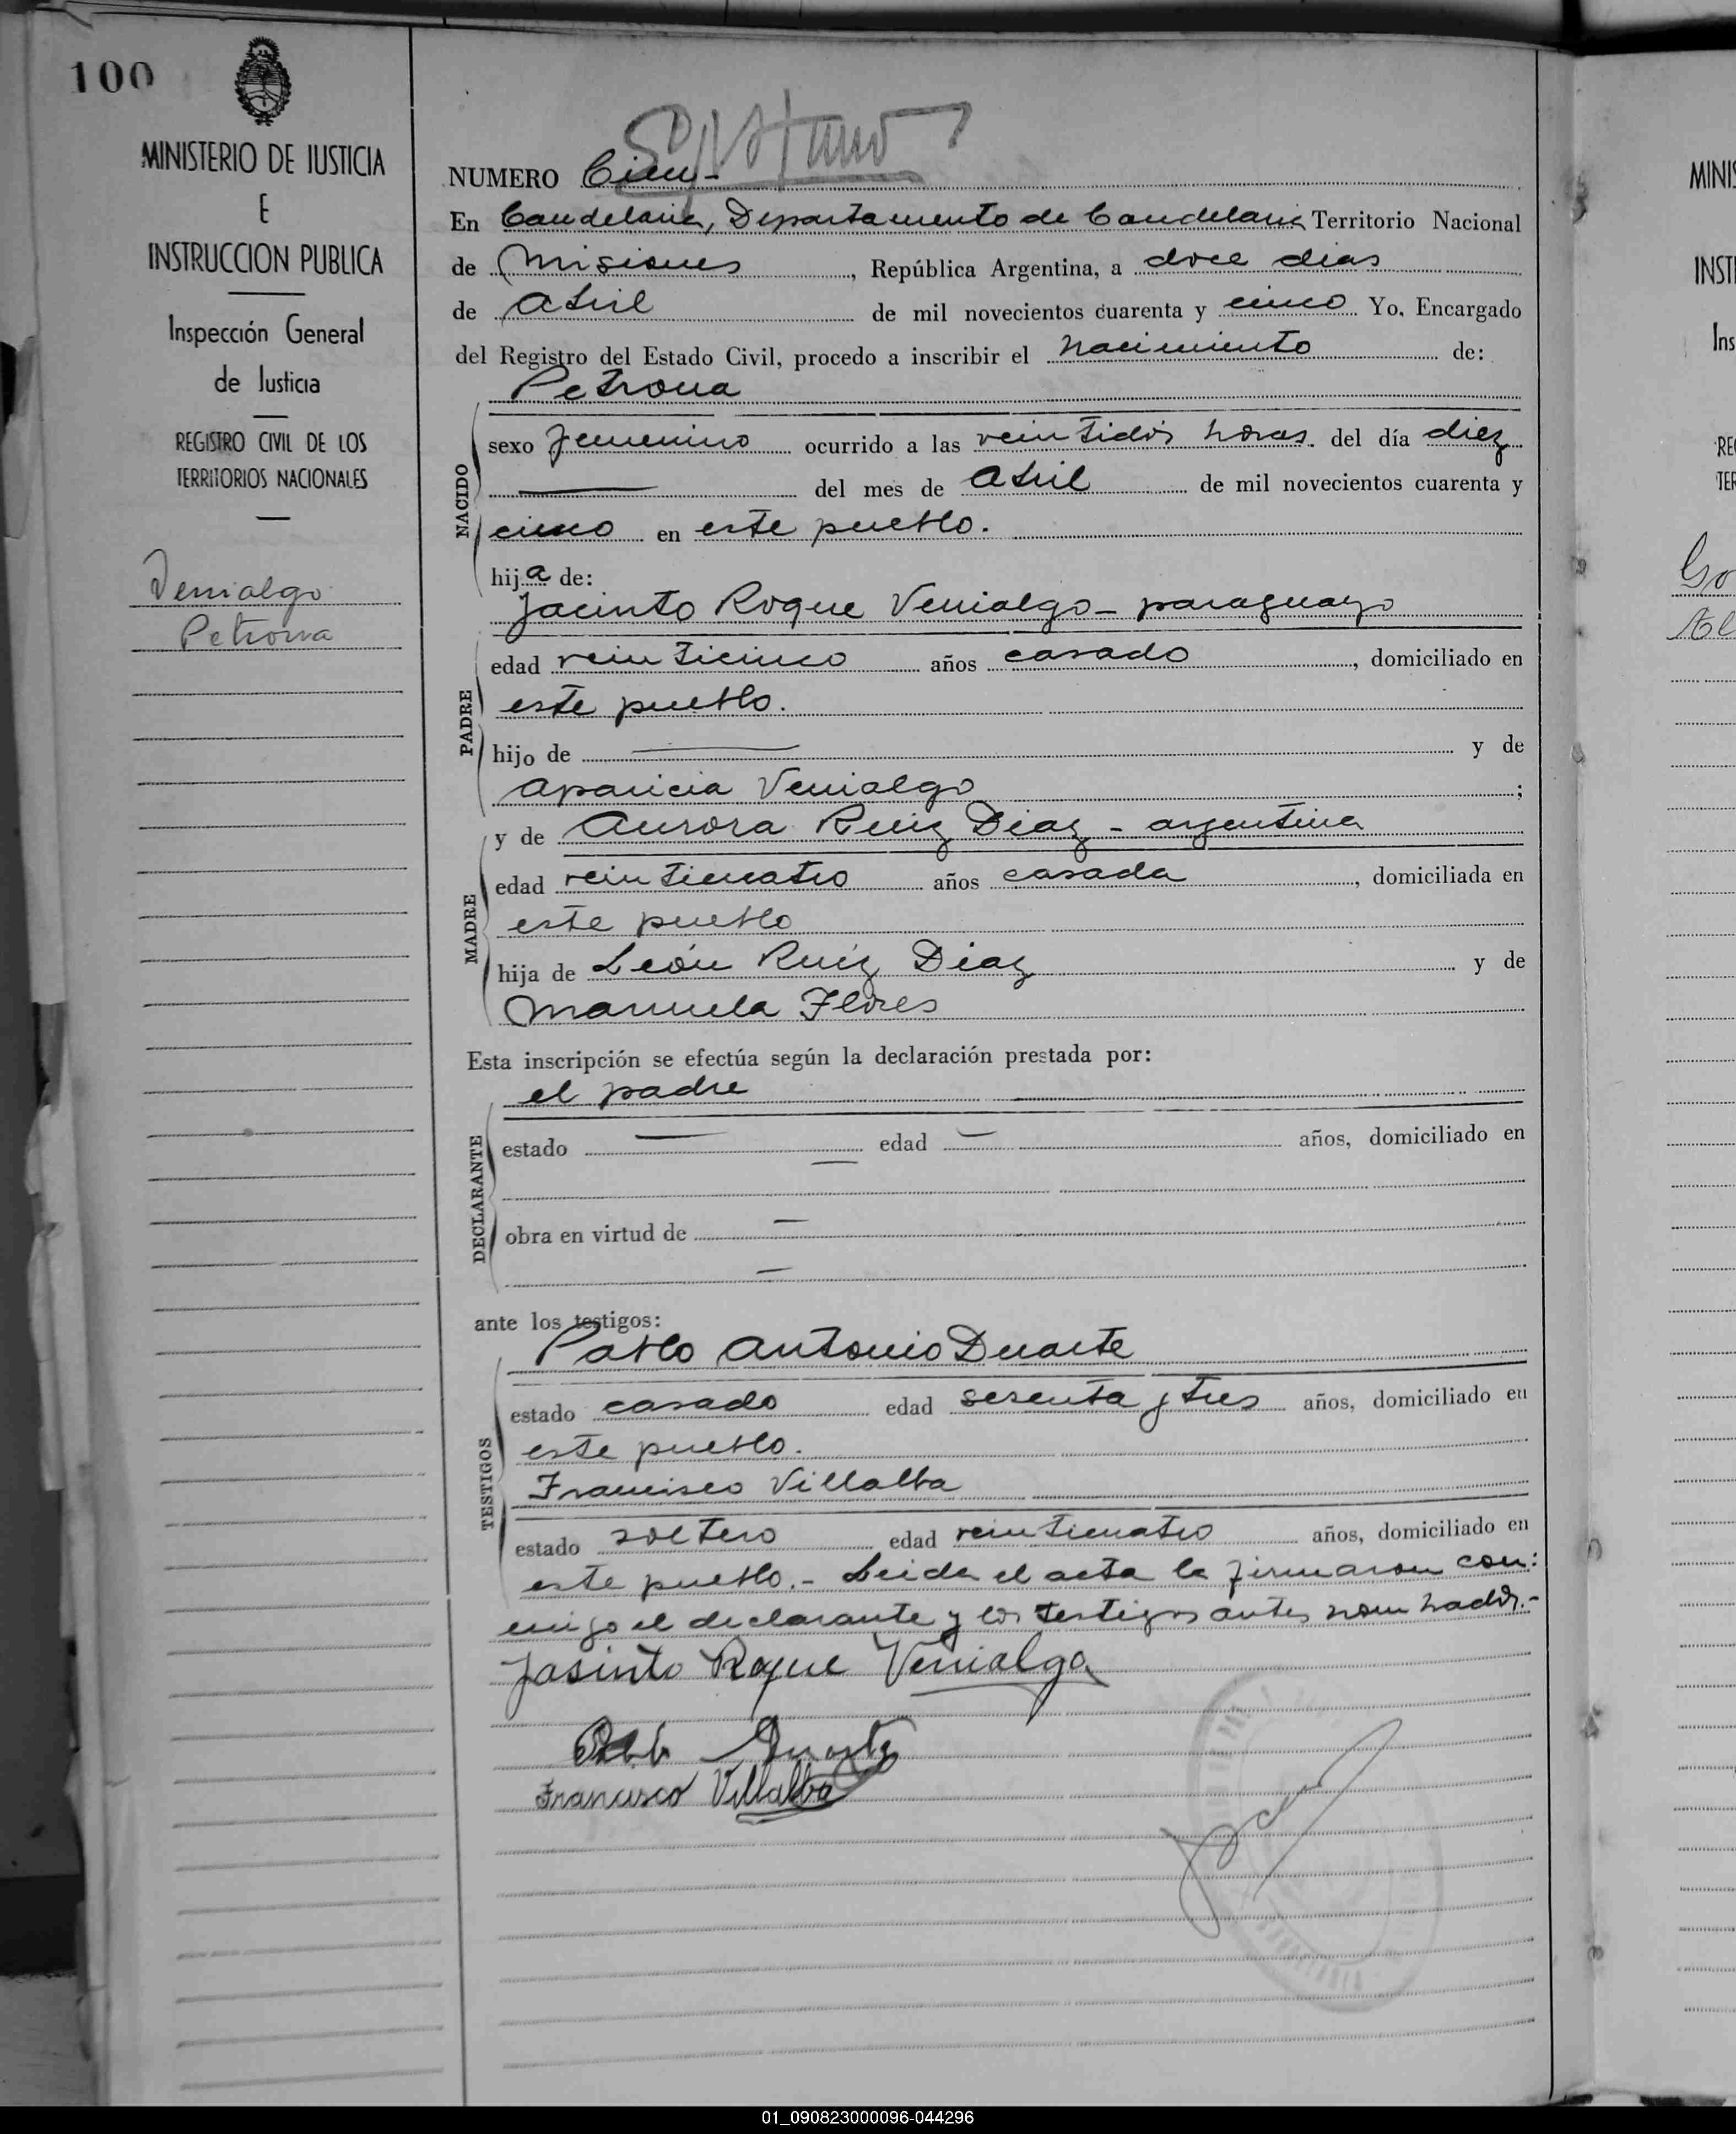 100
MINISTERIO DE JUSTICIA
E
INSTRUCCION PUBLICA
Inspección General
de Justicia
REGISTRO CIVIL DE LOS
TERRITORIOS NACIONALES
Venialgo
Petrona
NUMERO Cien-
En Candelaria, Departamento de Candelaria Territorio Nacional
de Misiones, República Argentina, a doce dias
de Abril de mil novecientos cuarenta y cinco Yo, Encargado
del Registro del Estado Civil, procedo a inscribir el nacimiento de:
Petrona
NACIDO
sexo femenino ocurrido a las veintidós horas. del día diez
del mes de Abril de mil novecientos cuarenta y
cinco en este pueblo.
hija de:
Jacinto Roque Venialgo - paraguayo
PADRE
edad veinticinco años casado, domiciliado en
este pueblo.
hijo de — y de
Aparicia Venialgo;
y de Aurora Ruiz Diaz - argentina
MADRE
edad veinticuatro años casada, domiciliada en
este pueblo
hija de León Ruiz Diaz y de
Manuela Flores
Esta inscripción se efectúa según la declaración prestada por:
el padre
DECLARANTE
estado — edad — años, domiciliado en
—
obra en virtud de —
—
ante los testigos:
Pablo Antonio Duarte
TESTIGOS
estado casado edad sesenta y tres años, domiciliado en
este pueblo.
Francisco Villalba
estado soltero edad veinticuatro años, domiciliado en
este pueblo.- Leida el acta la firmaron con:
migo el declarante y los testigos antes nombrados.-
Jasinto Roque Venialgo
Pablo Duarte
Francisco Villalba
Go
MINIS
INSTI
Ins
RE
TER
01_090823000096-044296